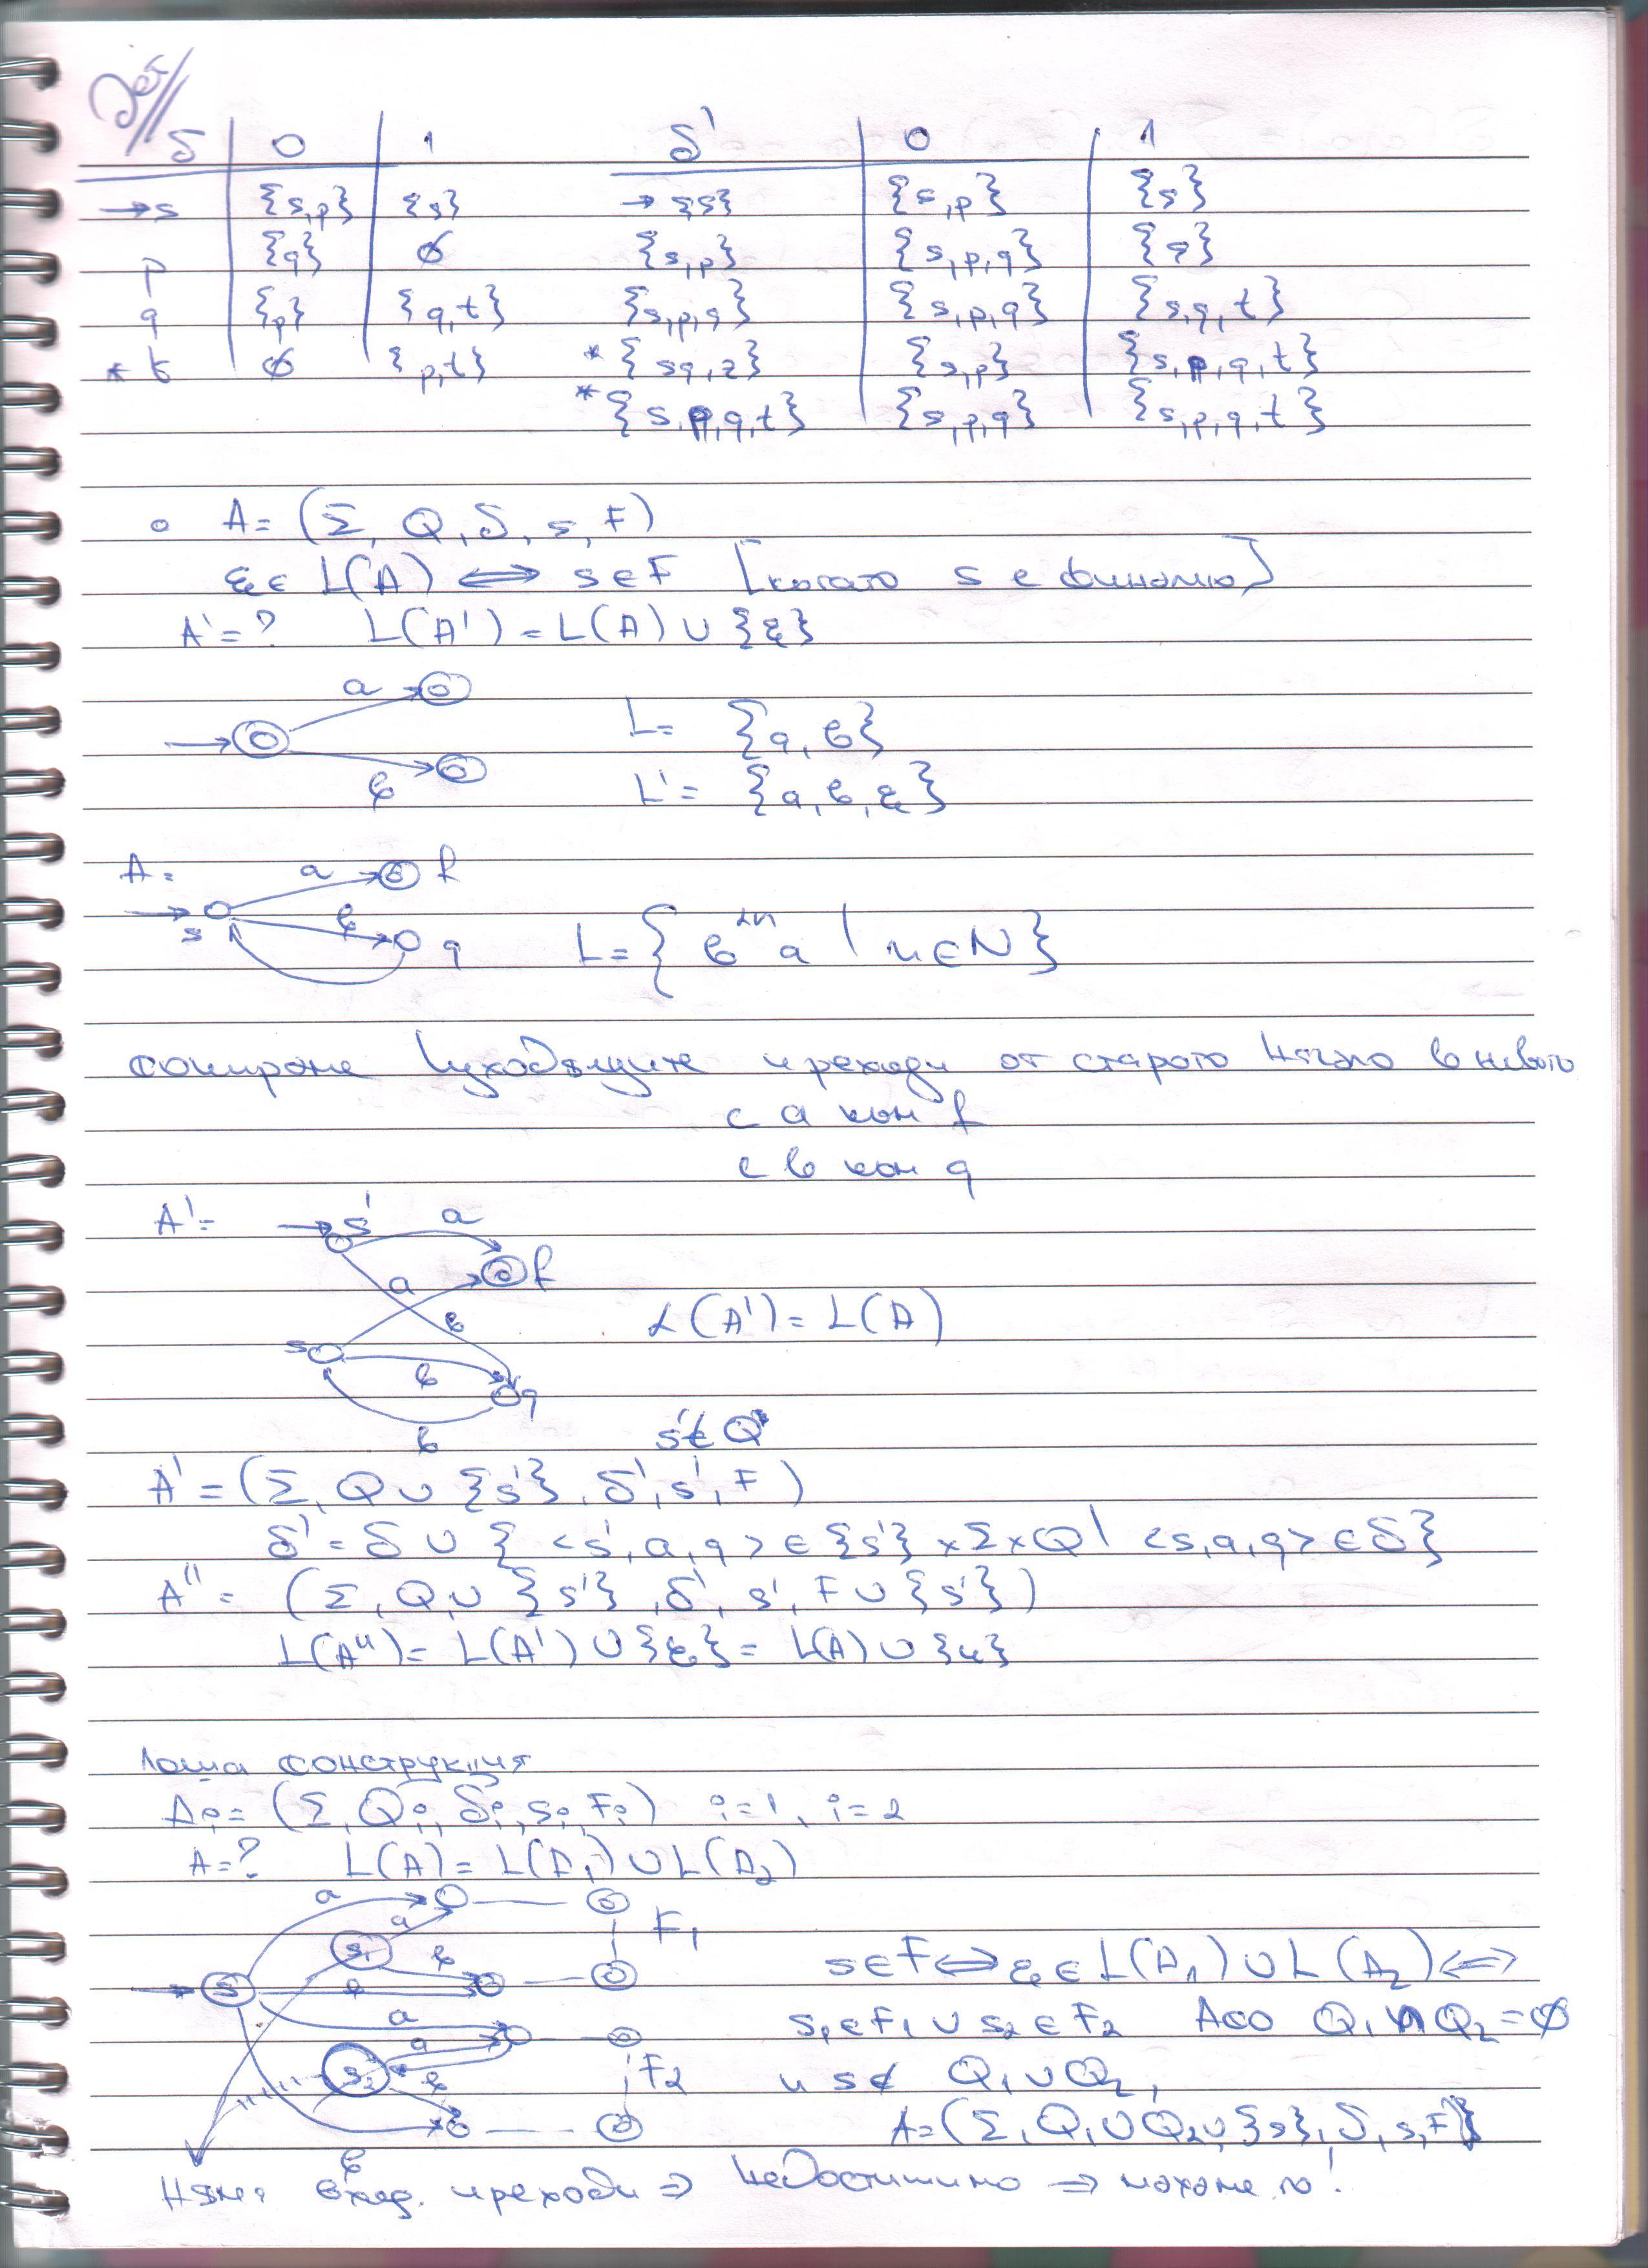 Дет//
δ | 0 | 1 δ' | 0 | 1
→s | {s,p} | {s} → {s} | {s,p} | {s}
p | {q} | ∅ {s,p} | {s,p,q} | {s}
q | {p} | {q,t} {s,p,q} | {s,p,q} | {s,q,t}
* t | ∅ | {p,t} * {s,q,t} | {s,p} | {s,p,q,t}
* {s,p,q,t} | {s,p,q} | {s,p,q,t}
o A = (Σ, Q, δ, s, F)
ε ∈ L(A) ⇔ s ∈ F [когато s е финално]
A' = ? L(A') = L(A) ∪ {ε}
a
L = {a, b}
b
L' = {a, b, ε}
A = a f
s b q L = { b²ⁿ a | n ∈ N }
копираме изходящите преходи от старото начало в новото
с a към f
с b към q
A' = → s' a
a f
b L(A') = L(A)
s b q
b s' ∉ Q
A' = (Σ, Q ∪ {s'}, δ', s', F)
δ' = δ ∪ { <s', a, q> ∈ {s'} × Σ × Q | <s, a, q> ∈ δ }
A'' = (Σ, Q ∪ {s'}, δ', s', F ∪ {s'})
L(A'') = L(A') ∪ {ε} = L(A) ∪ {ε}
Лоша конструкция
Ai = (Σ, Qi, δi, si, Fi) i = 1, i = 2
A = ? L(A) = L(A₁) ∪ L(A₂)
a
a F₁
s₁ b
s b s ∈ F ⇔ ε ∈ L(A₁) ∪ L(A₂) ⇔
a s₁ ∈ F₁ ∪ s₂ ∈ F₂ Ако Q₁ ∩ Q₂ = ∅
a
s₂ b F₂ и s ∉ Q₁ ∪ Q₂,
A = (Σ, Q₁ ∪ Q₂ ∪ {s}, δ, s, F)
b
Няма вход. преходи ⇒ недостижимо ⇒ махаме го!